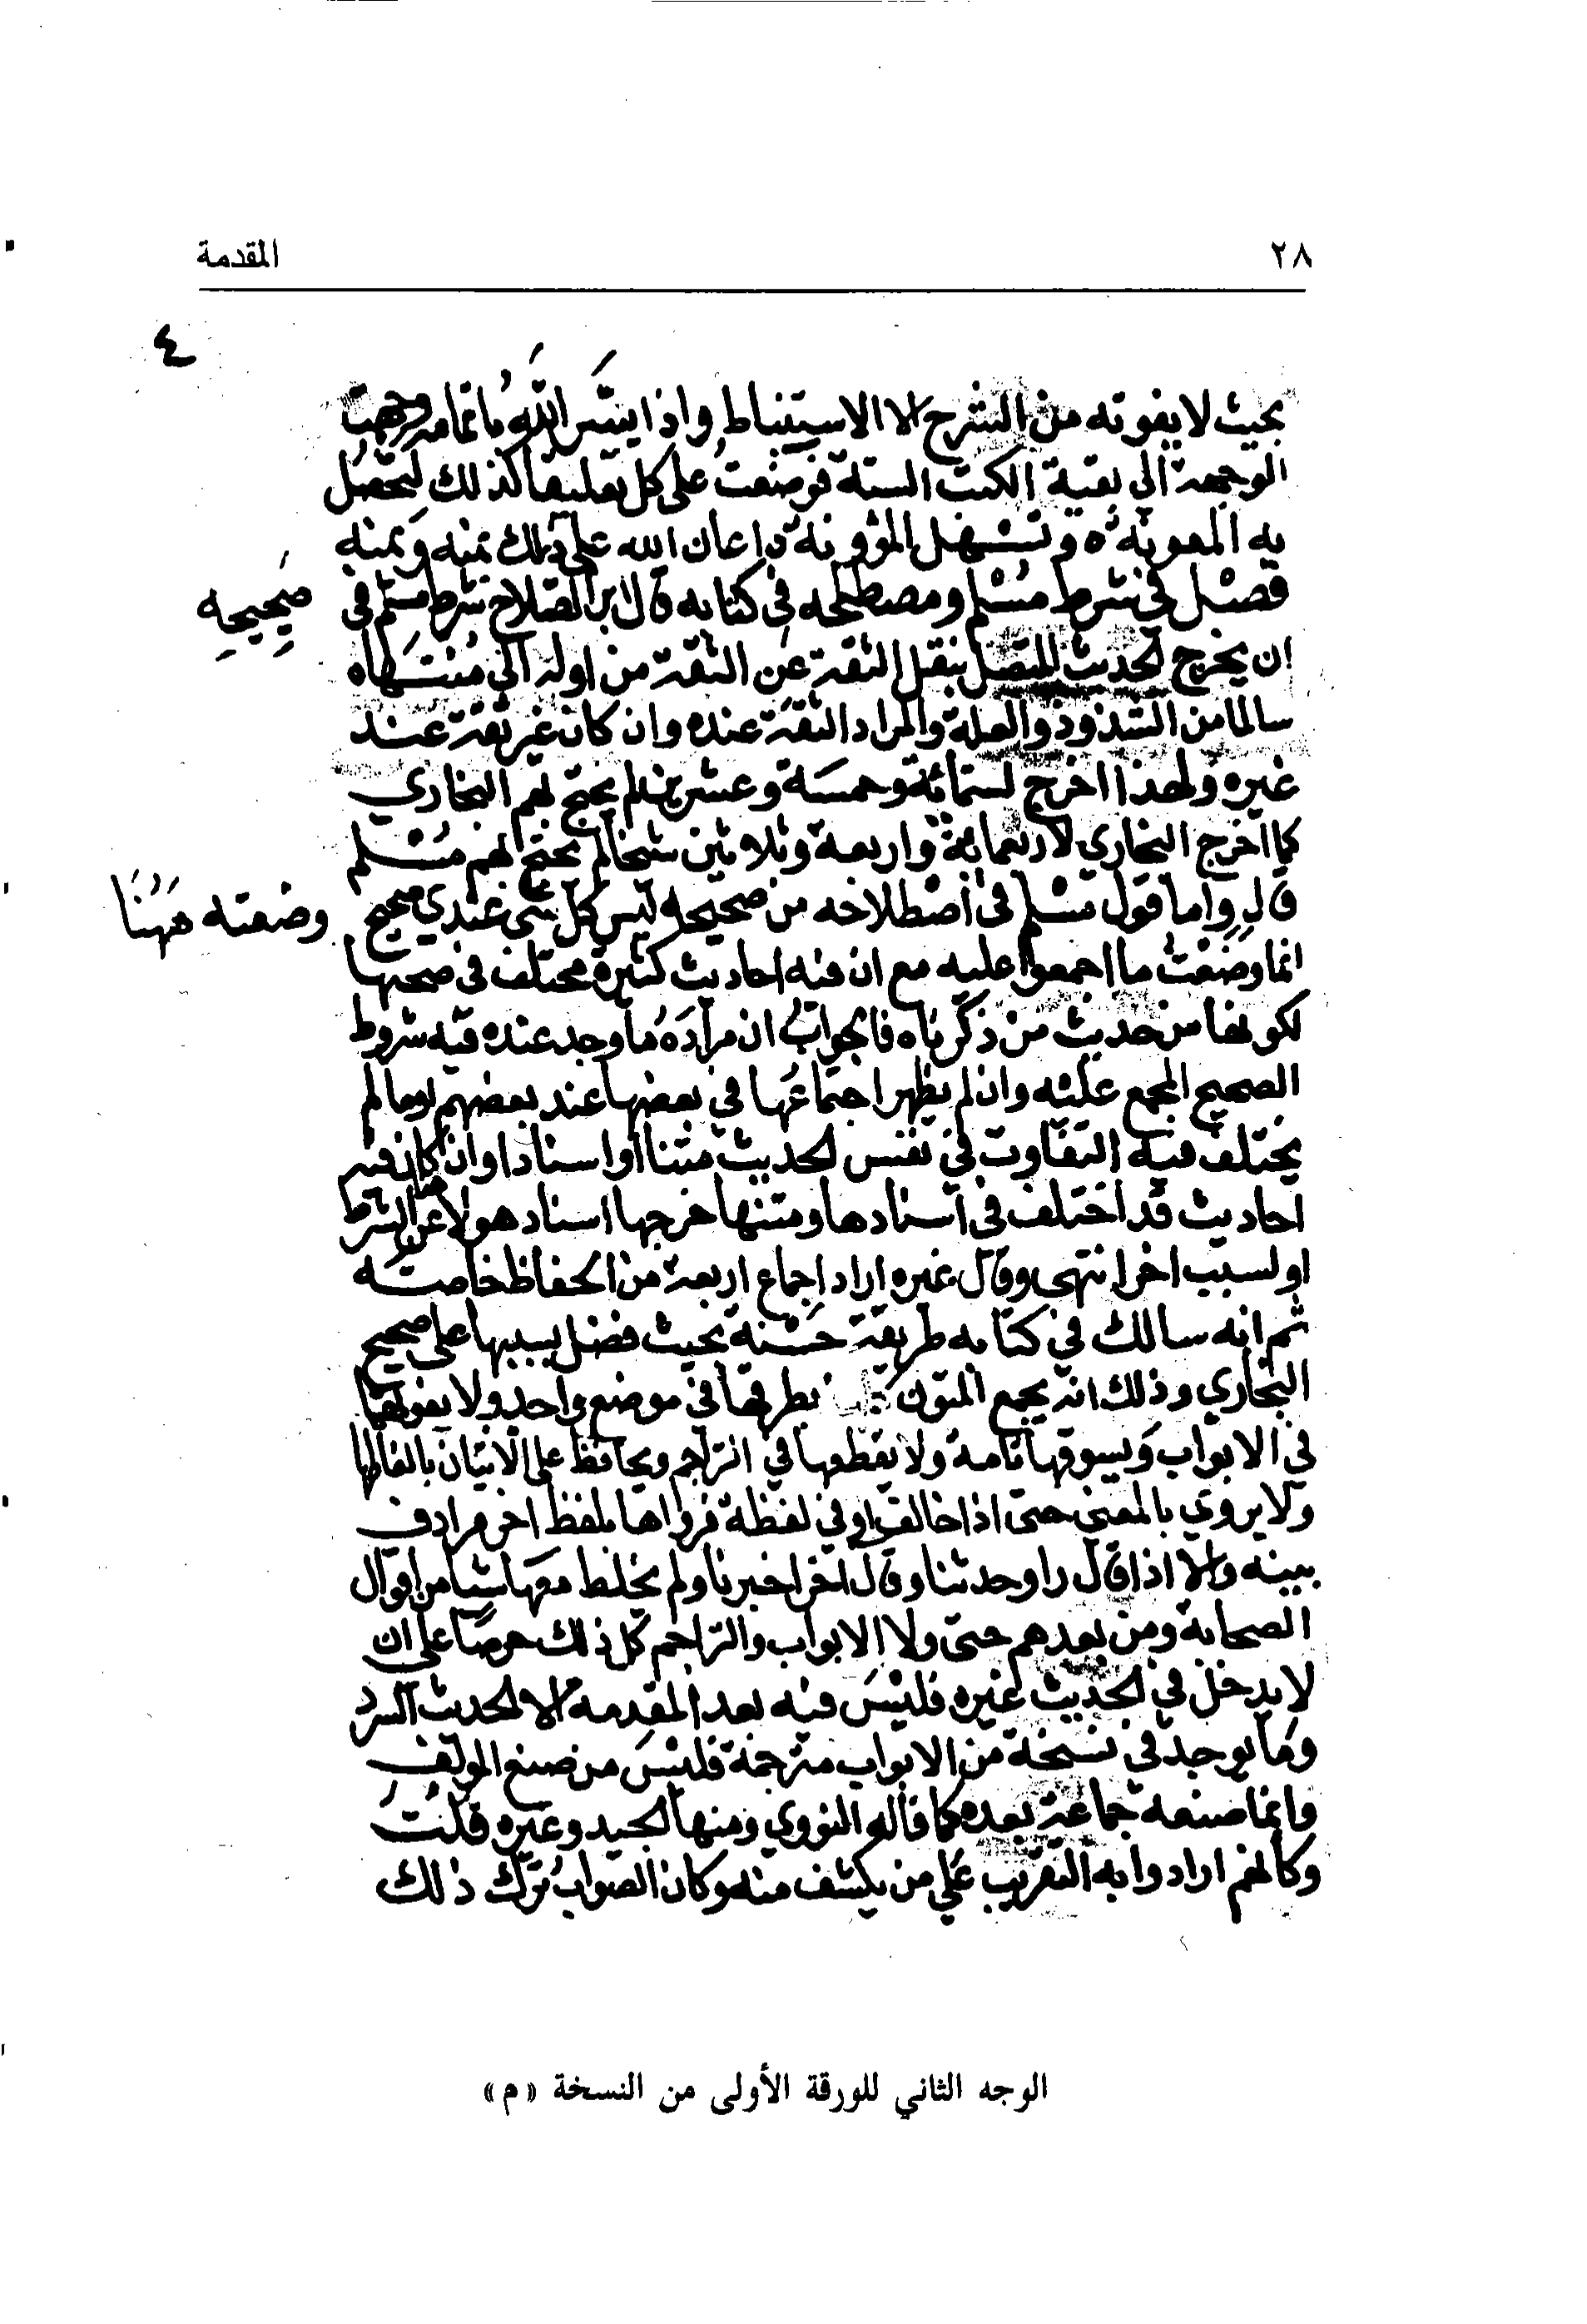 ٢٨
المقدمة
٤
بحيث لا يفوته من الشرح الا الاستنباط واذا يسر الله باتمامه وجهت
الوجهة الي بقية الكتب الستة فوضعت على كل تعليقا كذلك لتحصل
به المعونة وتسهل المؤونة اعان الله على ذلك بمنه ويمنه
فصل في شرط مسلم ومصطلحه في كتابه قال ابن الصلاح شرط مسلم في صحيحه
ان يخرج الحديث المتصل بنقل الثقة عن الثقة من اوله الي منتهاه
سالما من الشذوذ والعلة والمراد الثقة عنده وان كان غير ثقة عند
غيره ولهذا اخرج لستمائة وخمسة وعشرين لم يحتج بهم البخاري
كما اخرج البخاري لاربعمائة واربعة وثلاثين شيخا لم يحتج بهم مسلم
قال واما قول مسلم في اصطلاحه من صحيحه ليس كل شي عندي صحيح وضعته ههنا
انما وضعت ما اجمعوا عليه مع ان فيه احاديث كثيرة مختلف في صحتها
لكونها من حديث من ذكرناه فالجواب ان مراده ما وجد عنده فيه شروط
الصحيح المجمع عليه وان لم يظهر اجتماعها في بعضها عند بعضهم او ما لم
يختلف فيه التفاوت في نفس الحديث متنا او اسنادا وان كان فيه
احاديث قد اختلف في اسنادها ومتنها خرجها اسناد هولا عن الشرط
او لسبب اخر انتهى وقال غيره اراد اجماع اربعة من الحفاظ خاصة
ثم انه سالك في كتابه طريقة حسنة بحيث فضل بسببها على صحيح
البخاري وذلك انه يجمع المتون بطرقها في موضع واحد ولا يفرقها
في الابواب ويسوقها تامة ولا يقطعها في التراجم ويحافظ على الاتيان بالفاظها
ولا يروي بالمعنى حتى اذا خالف راو في لفظة فرواها بلفظ اخر مرادف
بينه والا اذا قال راو حدثنا وقال اخر اخبرنا ولم يخلط معها شيا من اقوال
الصحابة ومن بعدهم حتى ولا الابواب والتراجم كل ذلك حرصا على ان
لا يدخل في الحديث غيره فليس فيه بعد المقدمة الا الحديث السرد
وما يوجد في نسخة من الابواب مترجمة فليس من صنع المولف
وانما صنعه جماعة بعده كما قاله النووي ومنها الجيد وغيره قلت
وكانهم ارادوا به التقريب على من يكشف منه وكان الصواب ترك ذلك
الوجه الثاني للورقة الأولى من النسخة «م»